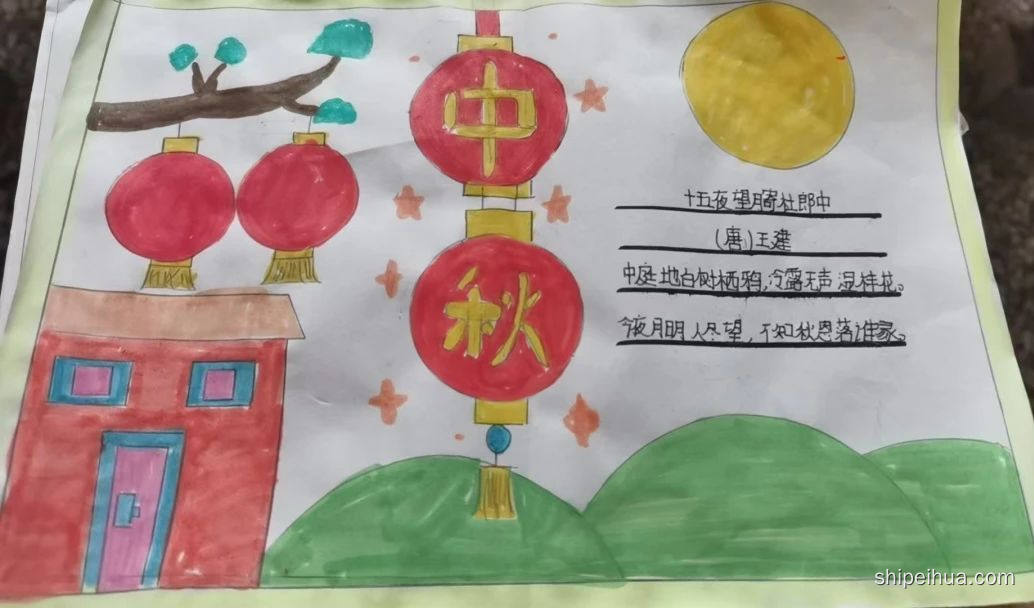 中
秋
十五夜望月寄杜郎中
(唐)王建
中庭地白树栖鸦,冷露无声湿桂花。
今夜月明人尽望,不知秋思落谁家。
shipeihua.com